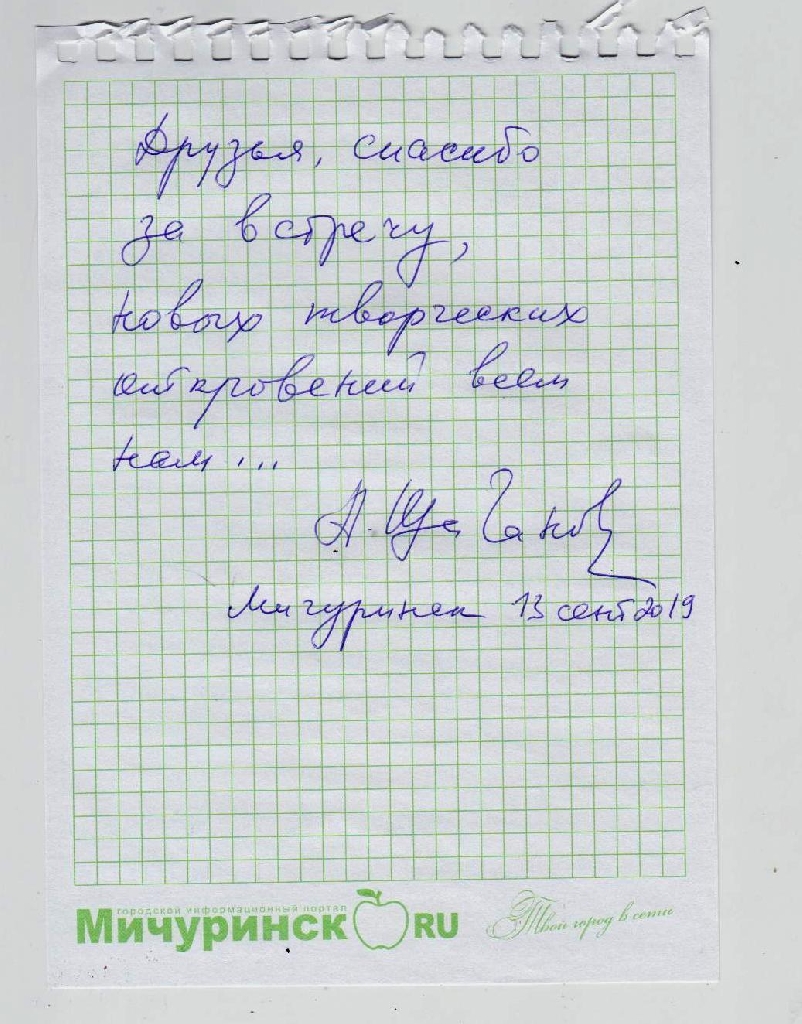 Друзья, спасибо
за встречу,
новых творческих
откровений всем
нам...
А. Щербаков
Мичуринск 13 сент 2019
городской информационный портал
Мичуринск RU
Твой город в сети